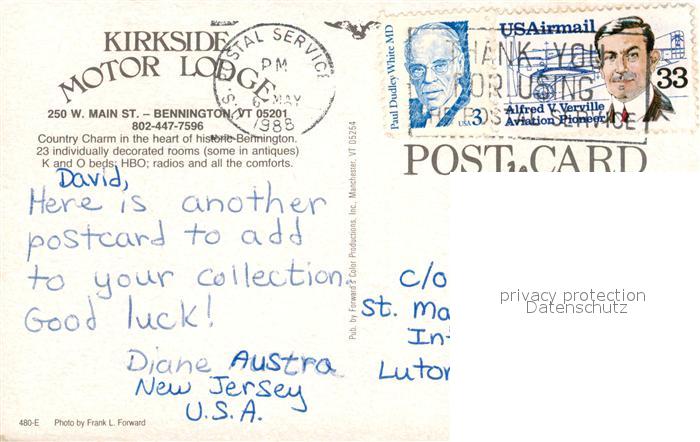 KIRKSIDE
MOTOR LODGE
250 W. MAIN ST. – BENNINGTON, VT 05201
802-447-7596
Country Charm in the heart of historic Bennington.
23 individually decorated rooms (some in antiques)
K and O beds; HBO; radios and all the comforts.
David,
Here is another
postcard to add
to your collection.
Good luck!
Diane Austra
New Jersey
U.S.A.
480-E Photo by Frank L. Forward
Pub. by Forward's Color Productions, Inc., Manchester, VT 05254
POSTAL SERVICE
PM
6 MAY
1988
Paul Dudley White MD
USA 3
USAirmail
33
Alfred V. Verville
Aviation Pioneer
THANK YOU
FOR USING
SERVICE
POST CARD
c/o
St. Ma
In
Luton
privacy protection
Datenschutz